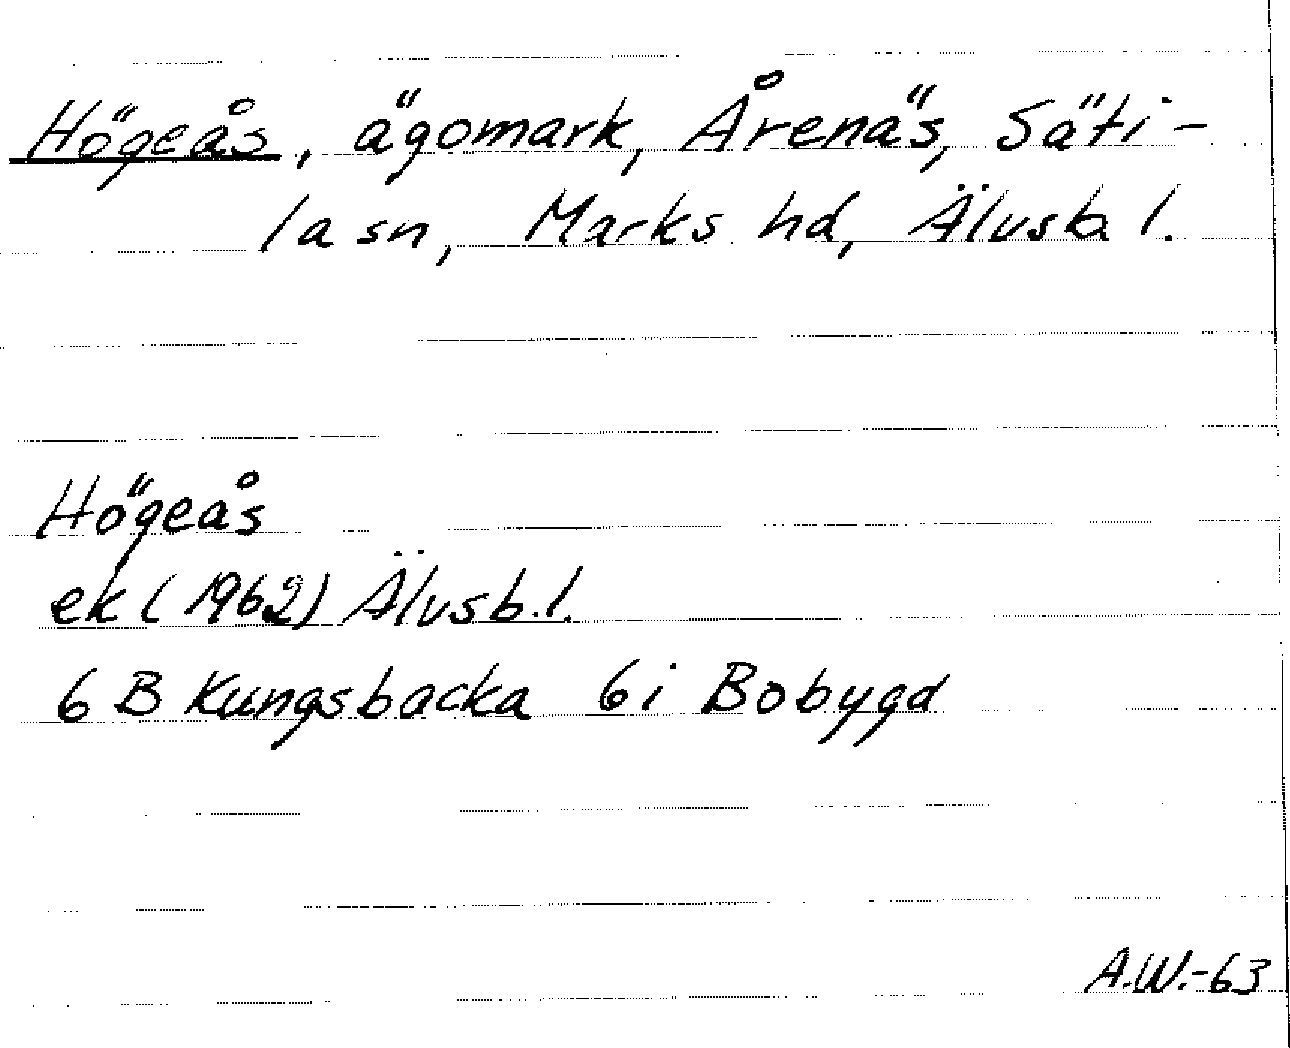 Högeås, ägomark, Årenäs, Säti-
la sn, Marks hd, Älvsb. l.
Högeås
ek (1962) Älvsb. l.
6 B Kungsbacka 6i Bobygd
A.W.-63